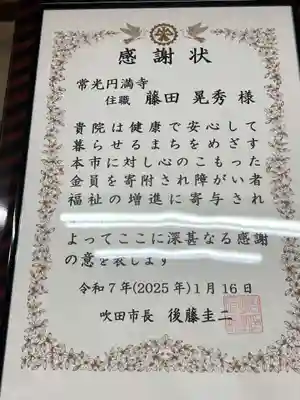 感謝状
常光円満寺
住職 藤田 晃秀 様
貴院は健康で安心して
暮らせるまちをめざす
本市に対し心のこもった
金員を寄附され障がい者
福祉の増進に寄与され
よってここに深甚なる感謝
の意を表します
令和7年(2025年)1月16日
吹田市長 後藤圭二